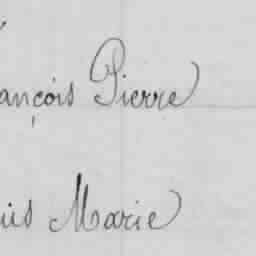 ançois Pierre
uis Marie